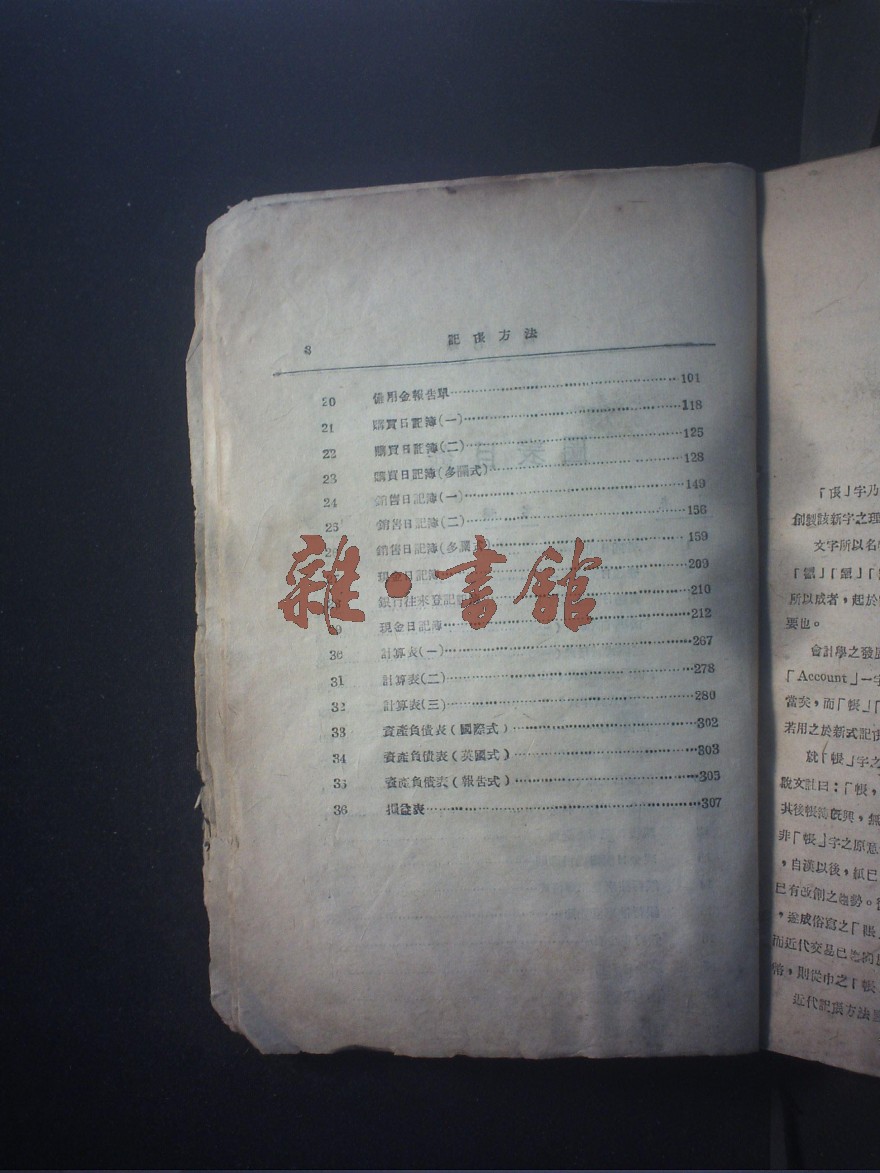 8 記帳方法
20 備用金報告單 101
21 購買日記簿(一) 118
22 購買日記簿(二) 125
23 購買日記簿(多欄式) 128
24 銷售日記簿(一) 149
25 銷售日記簿(二) 158
26 銷售日記簿(多欄式) 159
現金日記簿 209
銀行往來登記 210
現金日記簿 212
30 計算表(一) 267
31 計算表(二) 278
32 計算表(三) 280
33 資產負債表(國際式) 302
34 資產負債表(英國式) 303
35 資產負債表(報告式) 305
36 損益表 307
雜·書館
字乃
創製該新字之理
文字所以名
所以成者,起於
要也。
會計學之發展
「Account」一字
當矣,而「帳」「
若用之於新式記
就「帳」字之
說文註曰:「帳,
其後帳簿旣興,無
非「帳」字之原意
,自漢以後,紙已
已有改創之趨勢。
,遂成俗寫之「賬」
而近代交易已
幣,則從巾之「帳
近代記帳方法